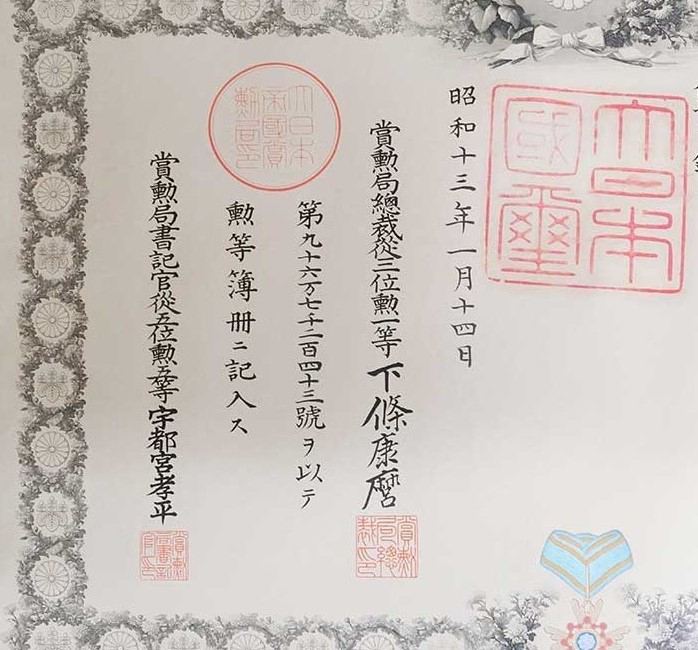 大日本國璽
昭和十三年一月十四日
賞勲局總裁從三位勲一等下條康麿
賞勲局總裁印
第九十六万七千二百四十三號ヲ以テ
大日本帝國賞勲局印
勲等簿冊ニ記入ス
賞勲局書記官從五位勲五等宇都宮孝平